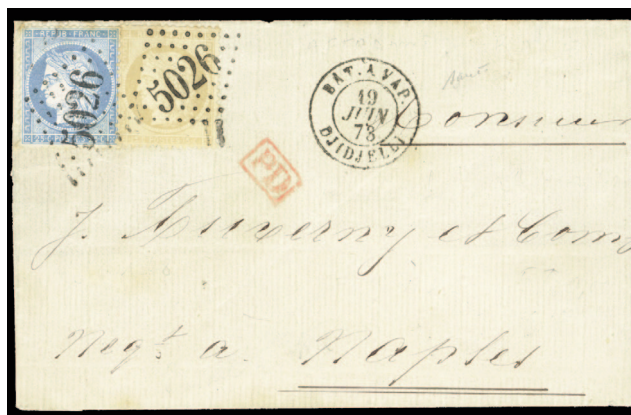 REPUB. FRANC.
5026
5026
BAT. A VAP.
19
JUIN
73
DJIDJELLI
PD
Monsieur
J. Auverny et Comp
Negt. a. Naples